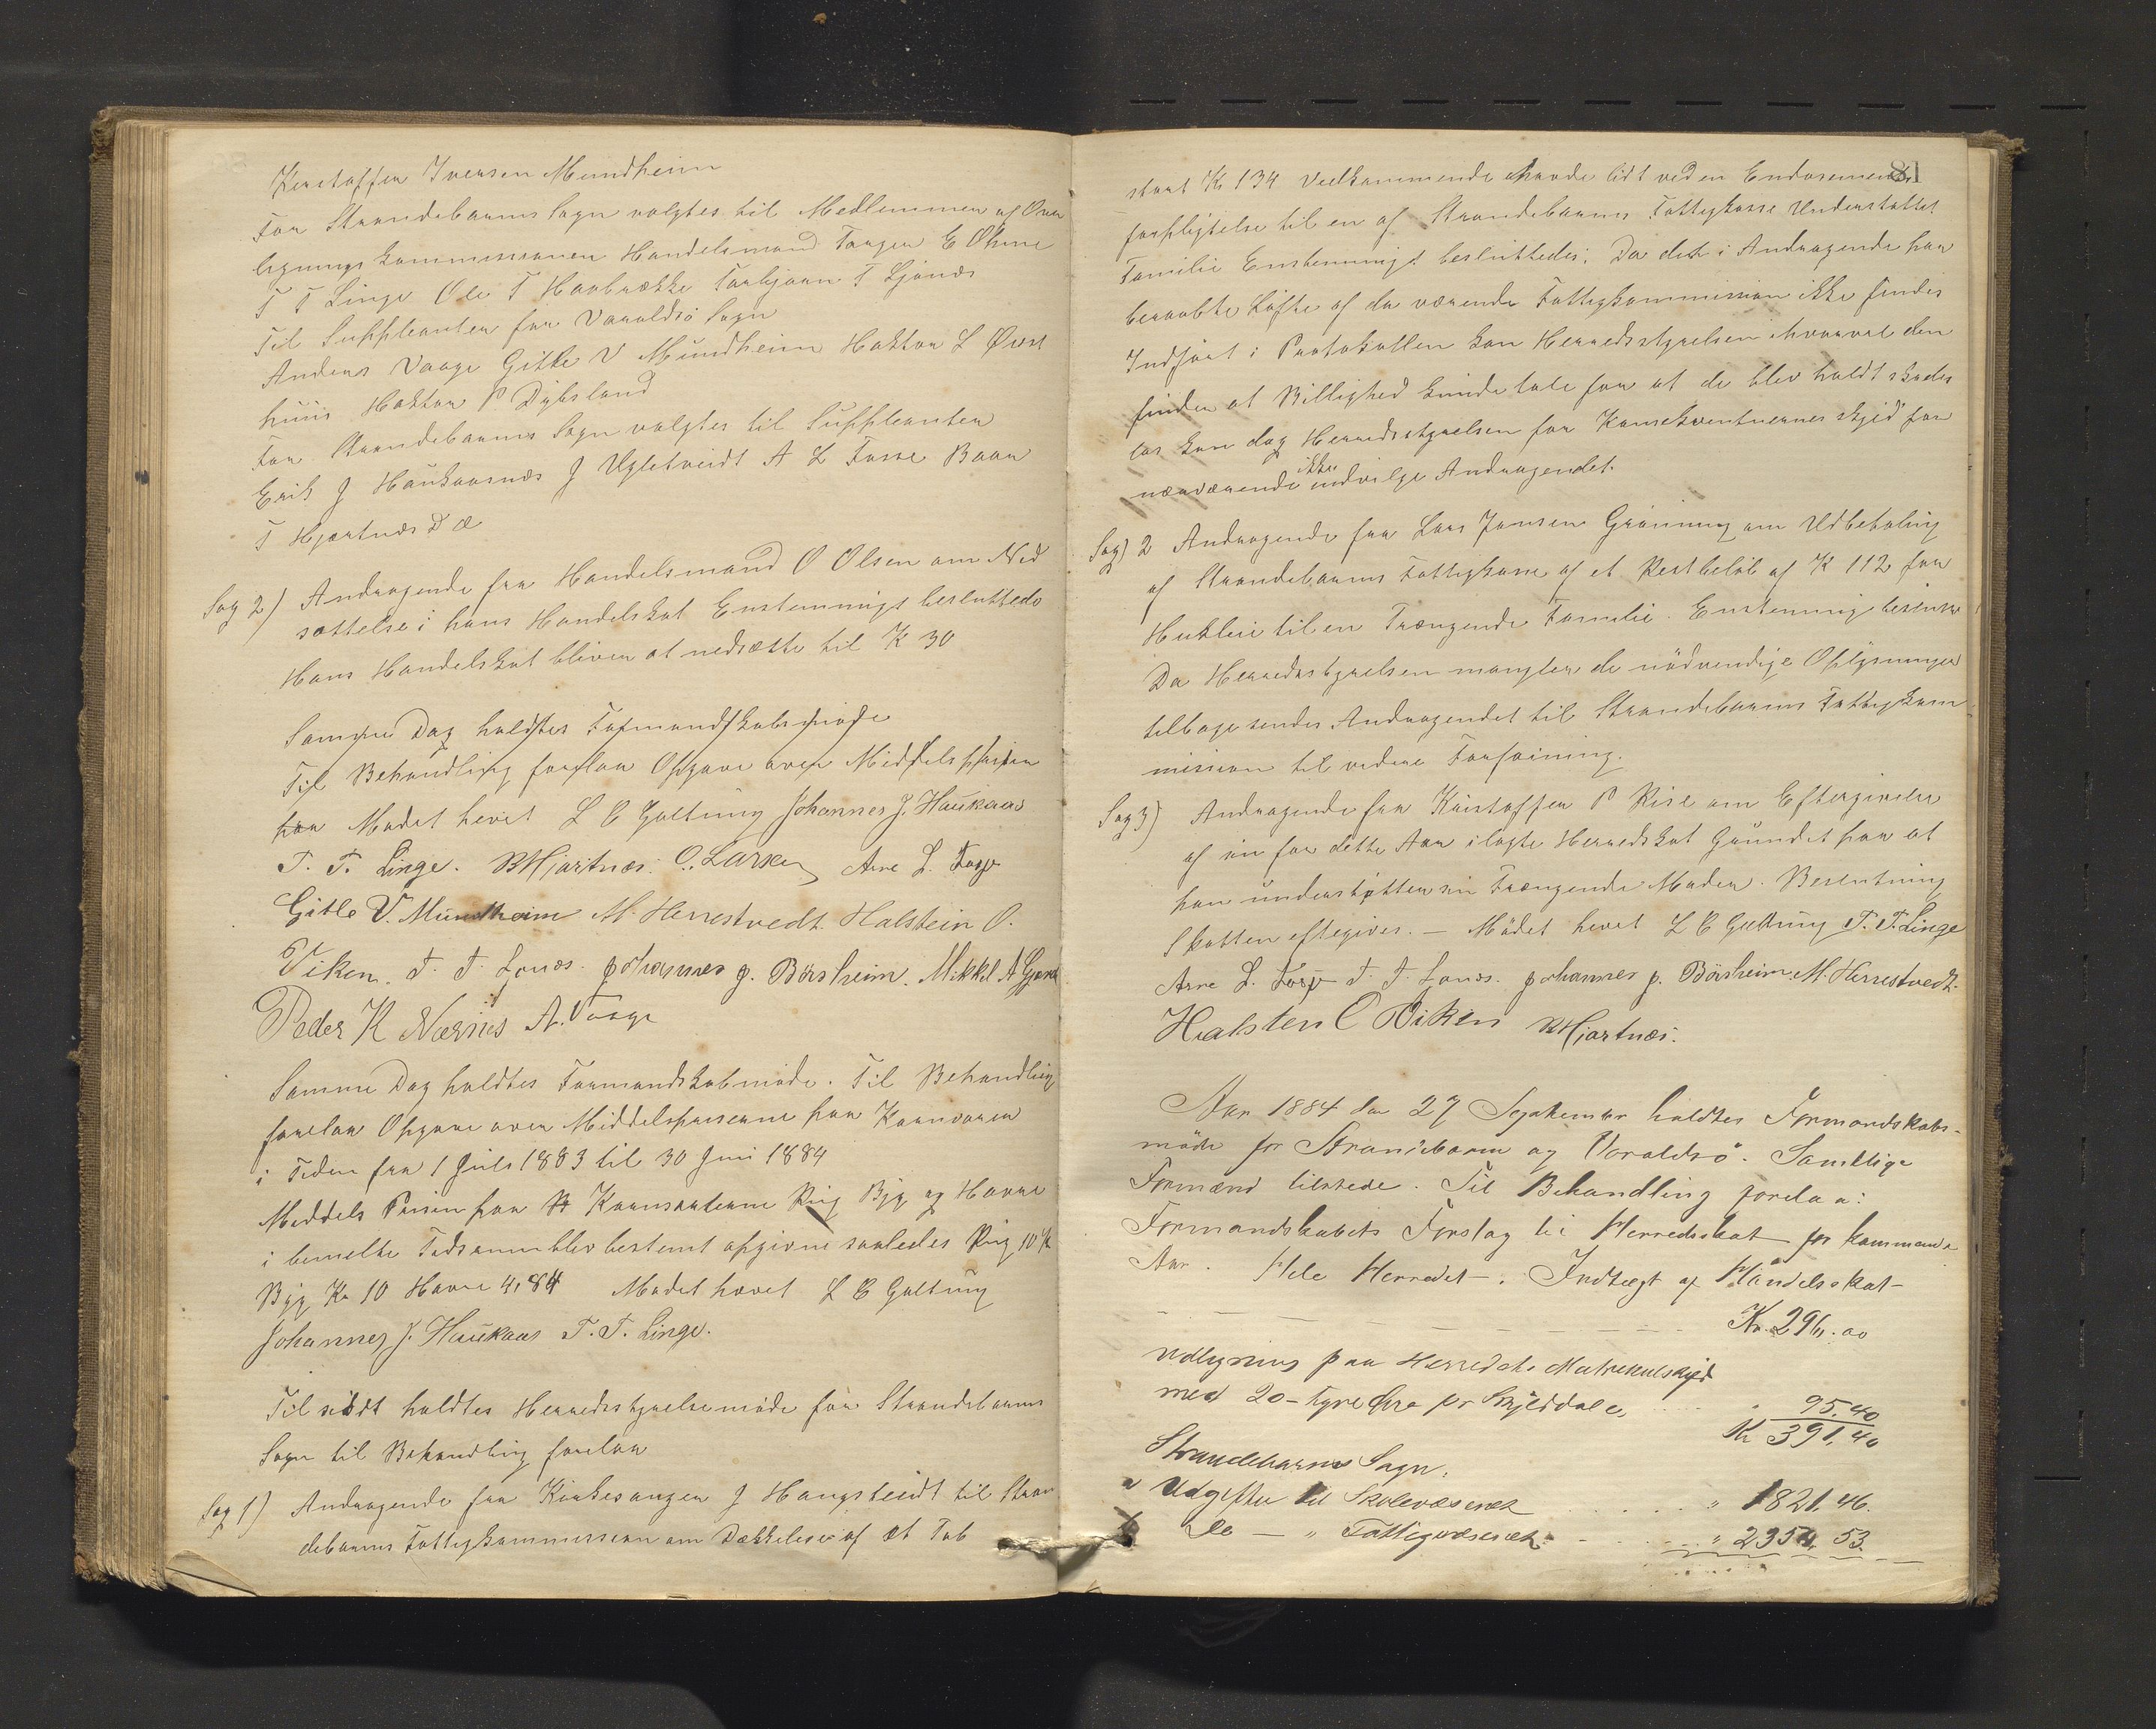 Kristoffer Iversen Mundheim
For Strandebarms Sogn valgtes til Medlemmer af Over
ligningskommissionen Handelsmand Torger E Ohme
T T Linge Ole T Haabrække Torbjørn T Ljonæs
Til Supleanter for Varaldsö Sogn
Anders Vaage Gitle V Mundheim Haktor L Øvst
huus Haktor P Dybsland
For Strandebarms Sogn valgtes til Supleanter
Erik J Haukaasnæs J Ugletveidt A L Fosse Baar
T Hjartnæs
Sag 2) Andragende fra Handelsmand O Olsen om Ned
sættelse i hans Handelskat Enstemmigt besluttedes
Hans Handelskat bliver at nedsætte til K 30
Samme Dag holdtes Formandskabsmøde
Til Behandling forelaa Opgave over Middelsprisen
paa Mødet hevet L C Galtung Johannes J. Haukaas
T. T. Linge. BHjartnæs. O. Larsen Arne L. Torp
Gitle V. Mundheim M. Herrestvedt. Halstein O.
Viken. T. T. Lonæs. Johannes J. Börsheim. Mikkel A
Peder K Nærnes A. Vaage
Samme Dag holdtes Formandskabmøde. Til Behandling
forelaa Opgave over Middelspriserne paa Kornvarer
i Tiden fra 1 Juli 1883 til 30 Juni 1884
Meddels Prisen paa Kornsorterne Rug Byg og Havre
i bemelte Tidsrum blev bestemt opgivne saaledes Rug 10 K
Byg Kr 10 Havre 4,84 Mødet hævet L C Galtung
Johannes J. Haukaas T. T. Linge.
Til sidst holdtes Herredsstyrelsemöde for Strandebarms
Sogn til Behandling forelaa
Sag 1) Andragende fra Kirkesanger J Haugstveidt til Stran
debarms Fattigkommission om Dækkelse af et Tab
81
stort K 134 Vedkommende havde lidt ved en Endosements
forpligtelse til en af Strandebarms Fattigkasse Understøttet
Familie Enstemmigt besluttedes. Da det i Andragende paa
beraabte Løfte af da værende Fattigkommission ikke findes
Indført i Protokollen kan Herredsstyrelsen hvorvel den
finder at Billighed kunde tale for at de blev holdt skades
løs kan dog Herredsstyrelsen for Konsekventsernes skyld for
nærværende ikke indvilge Andragendet.
Sag) 2 Andragende fra Lars Jansen Gröning om Udbetaling
af Strandebarms Fattigkasse af et Restbeløb af K 112 for
Husleie til en Trængende Familie. Enstemmig beslut
Da Herredsstyrelsen mangler de nödvendige Oplysninger
tilbagesendes Andragendet til Strandebarms Fattigkom
mission til videre Forføining.
Sag 3) Andragende fra Kristoffer P Rise om Eftergivelse
af sin for dette Aar ilagte Herredskat Grundet paa at
han understøtter sin Trængende Moder. Beslutning
Skatten eftegives. — Mödet hevet L C Galtung T. T. Linge
Arne L. Torp T. T. Lonæs. Johannes J. Börsheim. M. Herrestvedt.
Halsten O Viken BHjartnæs.
Aar 1884 den 27 September holdtes Formandskabs-
möde for Strandebarm og Varaldsö. Samtlige
Formænd tilstede. Til Behandling forelaa:
Formandskabets Forslag til Herredsskat for kommende
Aar. Hele Herredet. Indtægt af Handelsskat
Kr. 296.00
Udligning paa Herredets Matrikulskyld
med 20 - tyve Øre pr Skylddaler " 95.40
Kr 391.40
Strandebarms Sogn.
Udgifter til Skolevæsenet " 1821.46.
Do — " Fattigvæsenet " 2354.53.